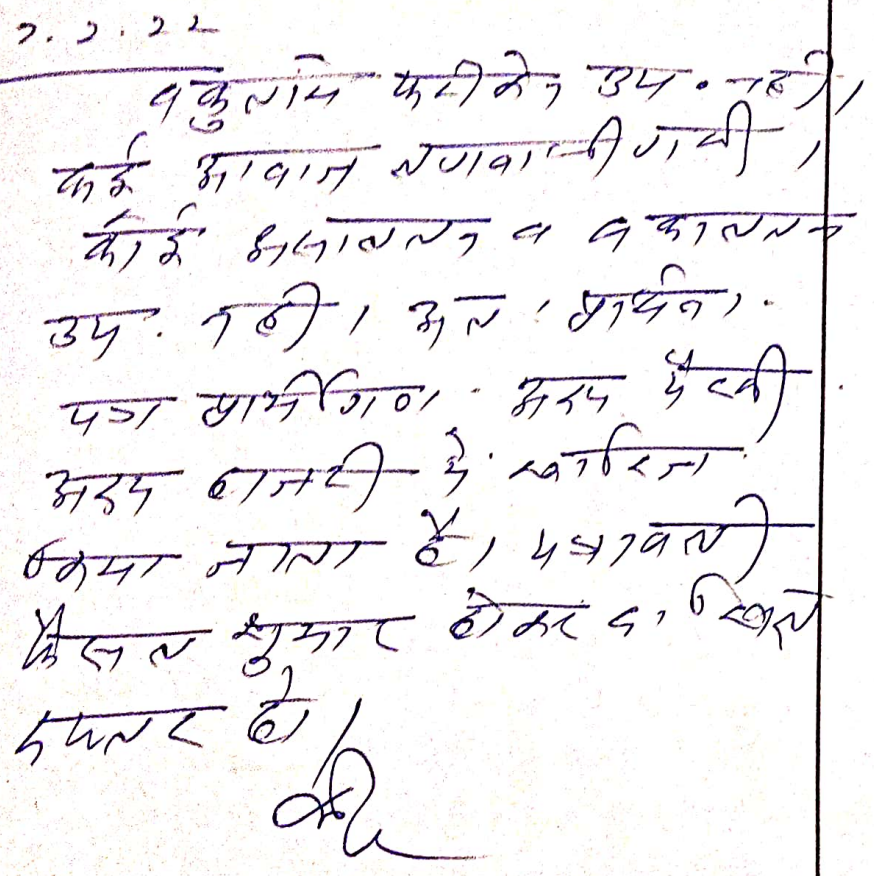 2.2.22
वकुलाय फरीकेन उप. नही।
कई आवाज लगवायी गयी।
कोई असालतन व वकालतन
उप. नही। अतः प्रार्थना
पत्र प्रार्थीगण अदम पैरवी
अदम हाजरी मे खारिज
किया जाता है। पत्रावली
फैसल शुमार होकर दाखिल
दफ्तर हो।